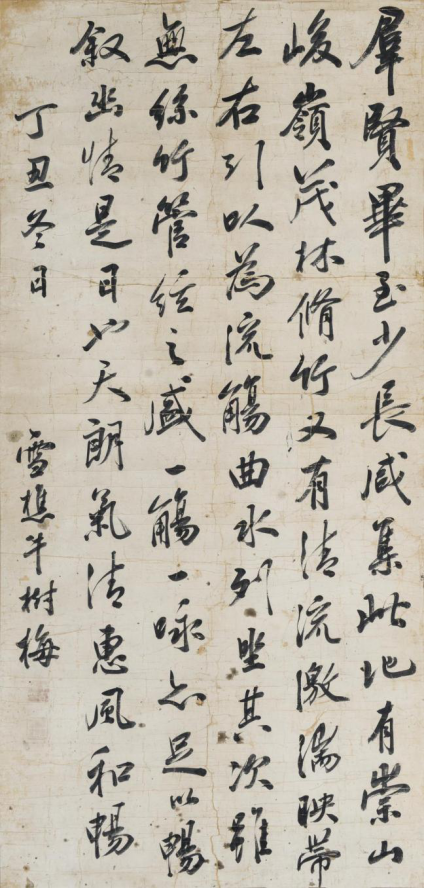 羣賢畢至少長咸集此地有崇山
峻嶺茂林脩竹又有清流激湍映帶
左右引以為流觴曲水列坐其次雖
無絲竹管絃之盛一觴一咏亦足以暢
叙幽情是日也天朗氣清惠風和暢
丁丑冬日
雪樵牛樹梅